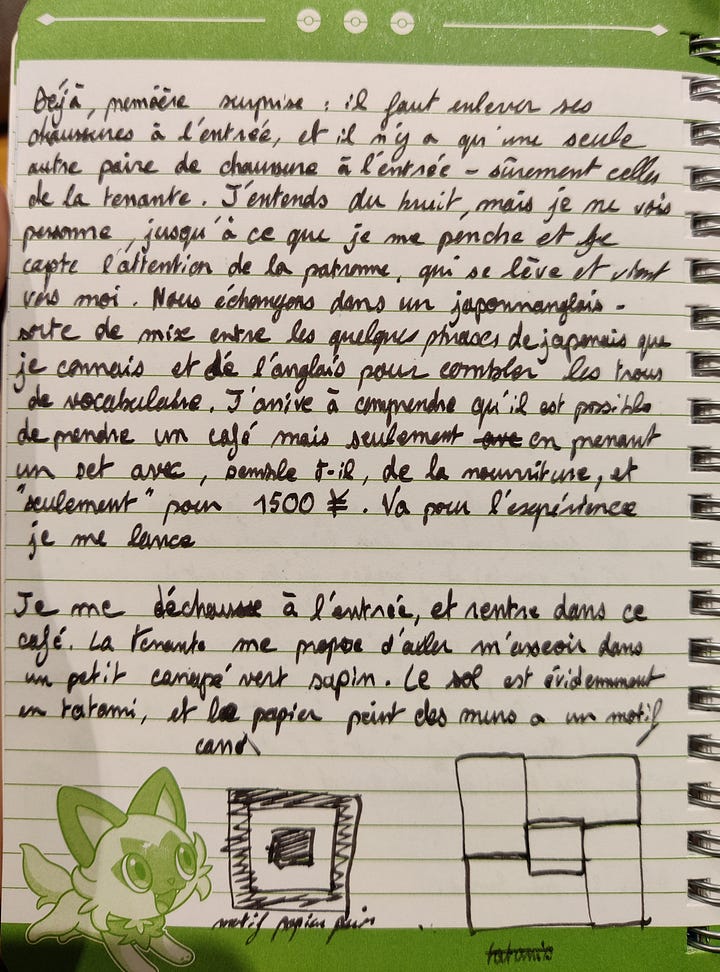 Déjà, première surprise : il faut enlever ses
chaussures à l'entrée, et il n'y a qu'une seule
autre paire de chaussure à l'entrée - sûrement celles
de la tenante. J'entends du bruit, mais je ne vois
personne, jusqu'à ce que je me penche et
capte l'attention de la patronne, qui se lève et vient
vers moi. Nous échangeons dans un japonnanglais -
sorte de mix entre les quelques phrases de japonais que
je connais et de l'anglais pour combler les trous
de vocabulaire. J'arrive à comprendre qu'il est possible
de prendre un café mais seulement en prenant
un set avec, semble t-il, de la nourriture, et
"seulement" pour 1500 ¥. Va pour l'expérience
je me lance
Je me déchausse à l'entrée, et rentre dans ce
café. La tenante me propose d'aller m'asseoir dans
un petit canapé vert sapin. Le sol est évidemment
en tatami, et le papier peint des murs a un motif
carré
motif papier peint
tatamis